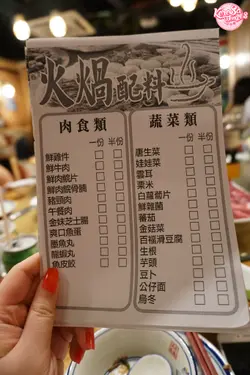 火煱配料
肉食類
一份 半份
鮮雞件
鮮牛肉
鮮肉餛片
鮮肉餛骨腩
豬頸肉
午餐肉
金妹芝士腸
爽口魚蛋
墨魚丸
龍蝦丸
魚皮餃
蔬菜類
一份 半份
唐生菜
娃娃菜
雲耳
栗米
白蘿蔔片
鮮雜菌
蕃茄
金菇菜
百福滑豆腐
生根
芋頭
豆卜
公仔面
烏冬